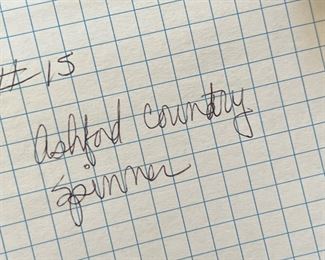 #15
Ashford Country
Spinner